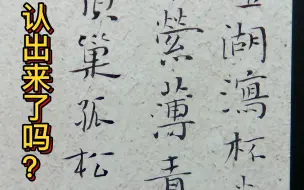 认出来了吗？
湖瀉杯
縈薄青
巢孤松